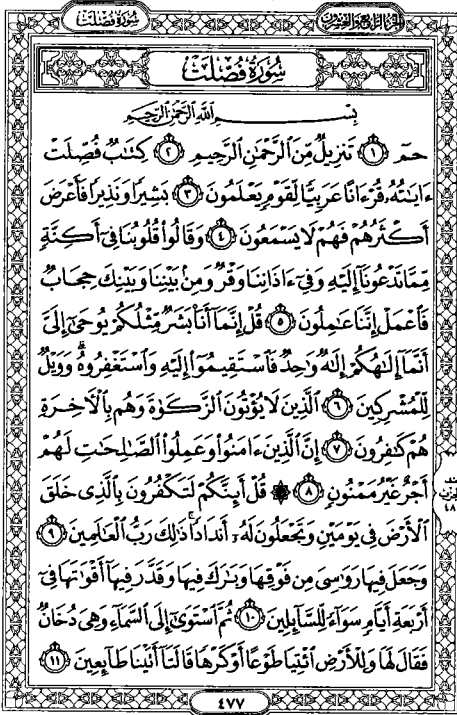 الجزء الرابع والعشرون
سورة فصلت
سُورَةُ فُصِّلَتْ
بِسْمِ اللَّهِ الرَّحْمَٰنِ الرَّحِيمِ
حمٓ ١ تَنزِيلٌ مِّنَ ٱلرَّحْمَٰنِ ٱلرَّحِيمِ ٢ كِتَٰبٌ فُصِّلَتْ
ءَايَٰتُهُۥ قُرْءَانًا عَرَبِيًّا لِّقَوْمٍ يَعْلَمُونَ ٣ بَشِيرًا وَنَذِيرًا فَأَعْرَضَ
أَكْثَرُهُمْ فَهُمْ لَا يَسْمَعُونَ ٤ وَقَالُوا۟ قُلُوبُنَا فِىٓ أَكِنَّةٍ
مِّمَّا تَدْعُونَآ إِلَيْهِ وَفِىٓ ءَاذَانِنَا وَقْرٌ وَمِنۢ بَيْنِنَا وَبَيْنِكَ حِجَابٌ
فَٱعْمَلْ إِنَّنَا عَٰمِلُونَ ٥ قُلْ إِنَّمَآ أَنَا۠ بَشَرٌ مِّثْلُكُمْ يُوحَىٰٓ إِلَىَّ
أَنَّمَآ إِلَٰهُكُمْ إِلَٰهٌ وَٰحِدٌ فَٱسْتَقِيمُوٓا۟ إِلَيْهِ وَٱسْتَغْفِرُوهُ ۗ وَوَيْلٌ
لِّلْمُشْرِكِينَ ٦ ٱلَّذِينَ لَا يُؤْتُونَ ٱلزَّكَوٰةَ وَهُم بِٱلْءَاخِرَةِ
هُمْ كَٰفِرُونَ ٧ إِنَّ ٱلَّذِينَ ءَامَنُوا۟ وَعَمِلُوا۟ ٱلصَّٰلِحَٰتِ لَهُمْ
أَجْرٌ غَيْرُ مَمْنُونٍ ٨ ۞ قُلْ أَئِنَّكُمْ لَتَكْفُرُونَ بِٱلَّذِى خَلَقَ
ٱلْأَرْضَ فِى يَوْمَيْنِ وَتَجْعَلُونَ لَهُۥٓ أَندَادًا ۚ ذَٰلِكَ رَبُّ ٱلْعَٰلَمِينَ ٩
وَجَعَلَ فِيهَا رَوَٰسِىَ مِن فَوْقِهَا وَبَٰرَكَ فِيهَا وَقَدَّرَ فِيهَآ أَقْوَٰتَهَا فِىٓ
أَرْبَعَةِ أَيَّامٍ سَوَآءً لِّلسَّآئِلِينَ ١٠ ثُمَّ ٱسْتَوَىٰٓ إِلَى ٱلسَّمَآءِ وَهِىَ دُخَانٌ
فَقَالَ لَهَا وَلِلْأَرْضِ ٱئْتِيَا طَوْعًا أَوْ كَرْهًا قَالَتَآ أَتَيْنَا طَآئِعِينَ ١١
الحزب
٤٨
٤٧٧